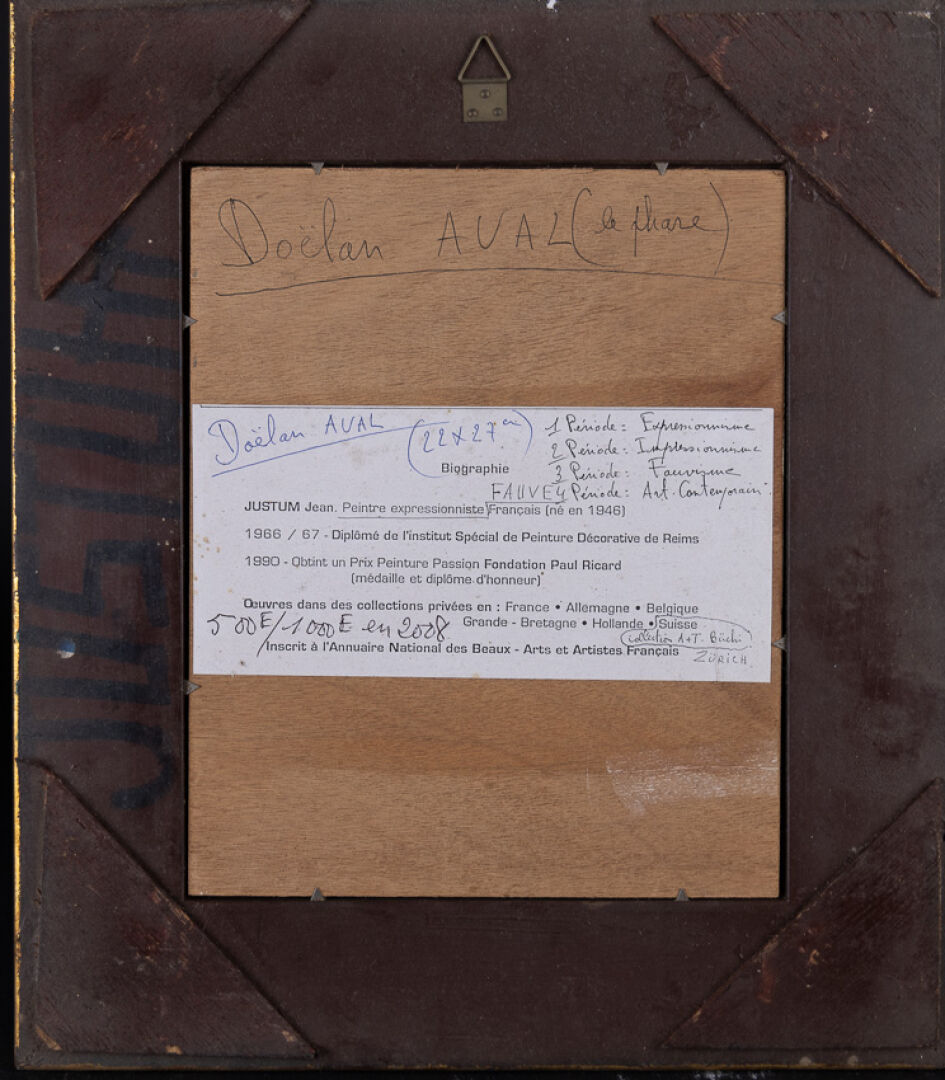 Doëlan AVAL (le phare)
Doëlan AVAL (22 x 27 cm)
1 Période : Expressionnisme
2 Période : Impressionnisme
3 Période : Fauvisme
FAUVE 4 Période : Art. Contemporain
Biographie
JUSTUM Jean. Peintre expressionniste Français (né en 1946)
1966 / 67 - Diplômé de l'institut Spécial de Peinture Décorative de Reims
1990 - Obtint un Prix Peinture Passion Fondation Paul Ricard
(médaille et diplôme d'honneur)
Œuvres dans des collections privées en : France • Allemagne • Belgique
Grande - Bretagne • Hollande • Suisse
500E/1000E en 2008
collection A+T. Büchi
ZÜRICH
Inscrit à l'Annuaire National des Beaux - Arts et Artistes Français
JUSTUM